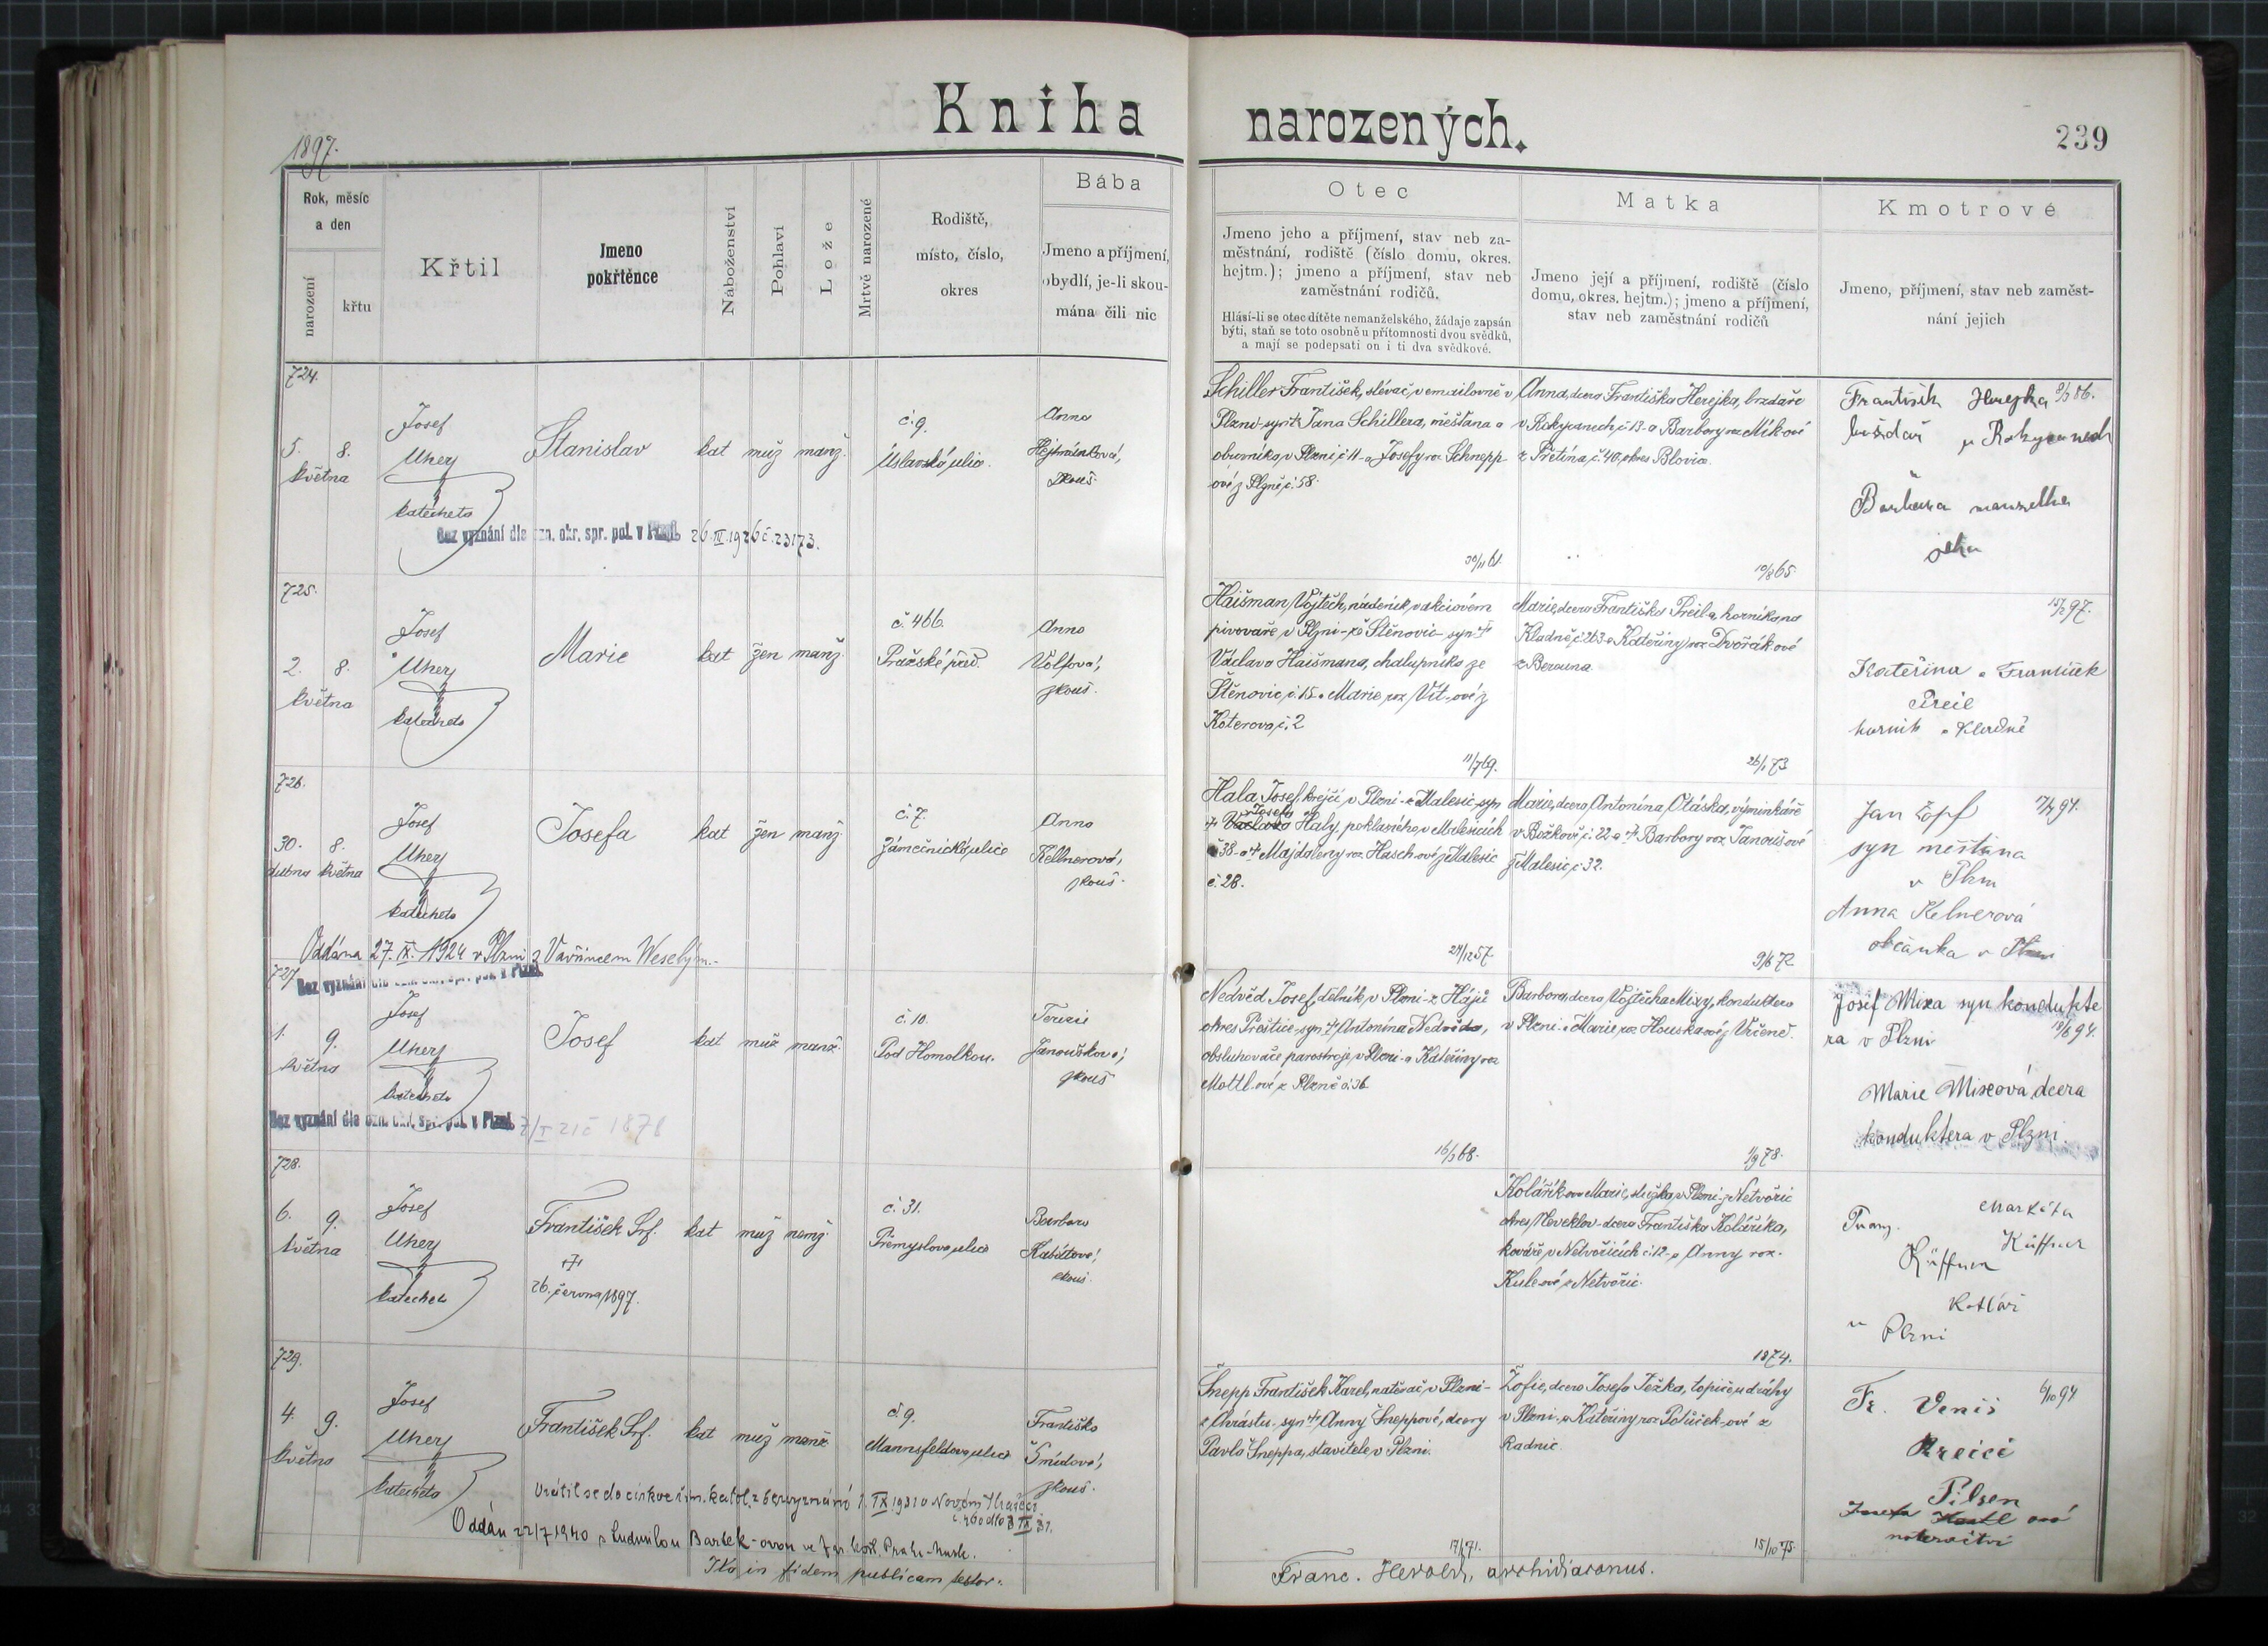 Kniha narozených.
239
1897.
Rok, měsíc
a den
narození
křtu
Křtil
Jmeno
pokřtěnce
Náboženství
Pohlaví
Lože
Mrtvě narozené
Rodiště,
místo, číslo,
okres
Bába
Jmeno a příjmení,
obydlí, je-li skou-
mána čili nic
Otec
Jmeno jeho a příjmení, stav neb za-
městnání, rodiště (číslo domu, okres.
hejtm.); jmeno a příjmení, stav neb
zaměstnání rodičů.
Hlásí-li se otec dítěte nemanželského, žádaje zapsán
býti, staň se toto osobně u přítomnosti dvou svědků,
a mají se podepsati on i ti dva svědkové.
Matka
Jmeno její a příjmení, rodiště (číslo
domu, okres. hejtm.); jmeno a příjmení,
stav neb zaměstnání rodičů
Kmotrové
Jmeno, příjmení, stav neb zaměst-
nání jejich
724.
5. 8.
května
Josef
Uherý
katecheta
Stanislav
kat muž manž.
č. 9.
Úslavská ulice.
Anna
Hejtmánková,
zkouš.
Bez vyznání dle ozn. okr. spr. pol. v Plzni. 26.III.1926 č. 23173.
Schiller František, slévač v emailovně v
Plzni syn † Jana Schillera, měšťana a
obuvníka v Plzni č 11 a Josefy roz. Schnepp-
ové z Plzně č. 58.
30/11 61.
Anna, dcera Františka Herejka, brzdaře
v Rokycanech, č. 13 a Barbory roz. Míkové
z Přetína, č. 40, okres Blovice.
10/8 65.
František Herejka 9/3 86.
v Rokycanech
Barbora manželka
jeho
725.
2. 8.
května
Josef
Uherý
katecheta
Marie
kat žen manž.
č. 466.
Pražské před.
Anna
Volfová,
zkouš.
Haišman Vojtěch, nádeník v akciovém
pivovaře v Plzni ze Štěnovic syn †
Václava Haišmana, chalupníka ze
Štěnovic, č. 15 a Marie roz. Vít-ové z
Koterova, č. 2
11/7 69.
Marie, dcera Františka Preila, horníka na
Kladně, č. 263 a Kateřiny roz. Dvořákové
z Berouna.
26/1 73
15/2 97.
Kateřina a František
Preil
horník v Kladně
726.
30. 8.
dubna května
Josef
Uherý
katecheta
Josefa
kat žen manž.
č. 7.
Zámečnická ulice
Anna
Kellnerová,
zkouš.
Oddána 27. IX. 1924 v Plzni s Vavřincem Weselým.
Hala Josef, krejčí v Plzni z Malesic, syn
† Václava Josefa Haly, poklasného v Malesicích
č 38 a † Majdaleny roz. Hasch-ové z Malesic
č. 28.
24/12 57
Marie, dcera Antonína Otáska, výminkáře
v Božkově č. 22 a † Barbory roz. Janoušové
z Malesic, č 32.
9/6 72
Jan Zopf 17/4 94.
syn měšťana
v Plzni
Anna Kelnerová
občanka v Plzni
727.
Bez vyznání dle ozn. okr. spr. pol. v Plzni.
1. 9.
května
Josef
Uherý
katecheta
Josef
kat muž manž.
č. 10.
Pod Homolkou.
Terezie
Janoušková,
zkouš
Bez vyznání dle ozn. okr. spr. pol. v Plzni. 7/I 21 č 1878
Nedvěd Josef, dělník v Plzni z Hájů
okres Přeštice syn † Antonína Nedvěda,
obsluhovače parostroje v Plzni a Kateřiny roz
Mottl-ové z Plzně č. 36.
16/3 68.
Barbora, dcera Vojtěcha Mixy, konduktera
v Plzni a Marie roz. Houskaové z Vrčeně.
1/9 78.
Josef Mixa syn kondukte
ra v Plzni 18/6 94.
Marie Mixová dcera
konduktera v Plzni.
728.
6. 9.
května
Josef
Uherý
katecheta
František Srf.
†
26. června 1897.
kat muž nemž.
č. 31.
Přemyslova ulice
Barbora
Kabátová,
zkouš.
Koláříkova Marie, služka v Plzni z Netvořic
okres Neveklov dcera Františka Koláříka,
kováře v Netvořicích č 12 a Anny roz.
Kuleové z Netvořic.
1874.
Franz. Markéta
Küffner Küffner
Kotlář
v Plzni
729.
4. 9.
května
Josef
Uherý
katecheta
František Srf.
kat muž manž
č. 9.
Mannsfeldova ulice
Františka
Šmídová,
zkouš.
Vrátil se do církve řím. katol. z bezvyznání 1. IX 1931 v Novém Strašecí
Oddán 22/7 1940 s Ludmilou Bartek-ovou ve far. kost. Praha-Nusle.
Ita in fidem publicam testor:
Šnepp František Karel, natěrač v Plzni
z Chrástu syn † Anny Šneppové, dcery
Pavla Šneppa, stavitele v Plzni.
17/1 71.
Žofie, dcera Josefa Ježka, topiče u dráhy
v Plzni a Kateřiny roz. Potůček-ové z
Radnic.
15/10 75.
Fr. Veniš 6/10 94
Krejčí
Pilsen
Franc. Herold, archidiaconus.